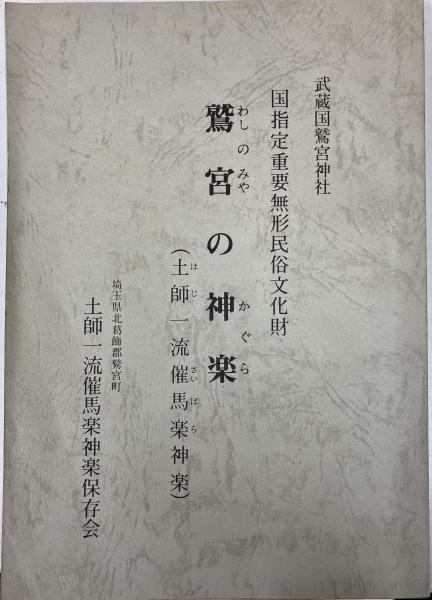 武蔵国鷲宮神社
国指定重要無形民俗文化財
鷲宮の神楽
わしのみや かぐら
(土師一流催馬楽神楽)
はじ さいばら
埼玉県北葛飾郡鷲宮町
土師一流催馬楽神楽保存会